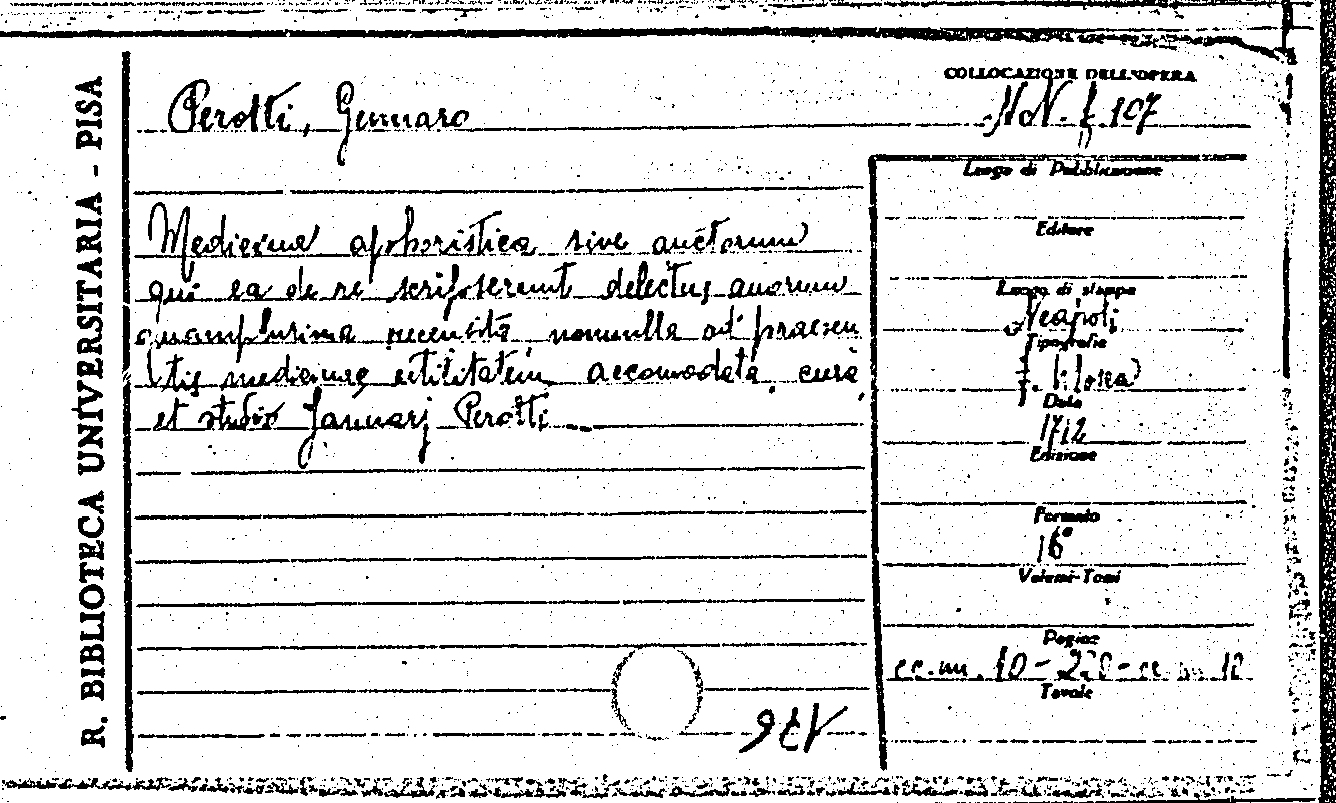 R. BIBLIOTECA UNIVERSITARIA - PISA
Perotti, Gennaro
Medicinae aphoristica sive auctorum
qui ea de re scripserunt delectus quorum
quamplurima recensita nonnulla ad praesen
tis medicinae utilitatem accomodata, cura
et studio Januarj Perotti
COLLOCAZIONE DELL'OPERA
107
Luogo di Pubblicazione
Editore
Luogo di stampa
Neapoli
Tipografia
Data
1712
Edizione
Formato
16°
Volumi-Tomi
Pagine
cc. nn. 10 - 220 - cc nn 12
Tavole